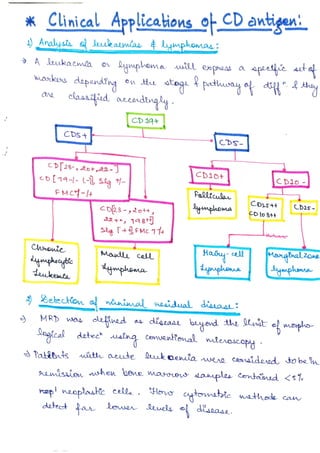 * Clinical Applications of CD antigen:
1) Analysis of leukaemias & lymphomas:
→ A leukaemia or lymphoma will express a specific set of
markers depending on the stage & pathway of diffⁿ & they
are classified accordingly.
CD19+
CD5+
CD5-
CD[23-, 20++, 22-]
CD[79-/- (-)], SIg +/-
FMC7-/+
CD[23-, 20++,
22++, 79B++]
SIg [+], FMC7/+
CD10+
CD10-
Follicular
lymphoma
CD25++
CD103++
CD25-
Chronic
Lymphocytic
Leukemia
Mantle cell
Lymphoma
Hairy cell
lymphoma
Marginal zone
lymphoma
2) Detection of minimal residual disease:
→ MRD was defined as disease beyond the limit of morpho-
logical detecⁿ using conventional microscopy.
→ Patients with acute leukaemia were considered to be in
remission when bone marrow samples contained <5%
neoplastic cells. Flow cytometric methods can
detect far lower levels of disease.